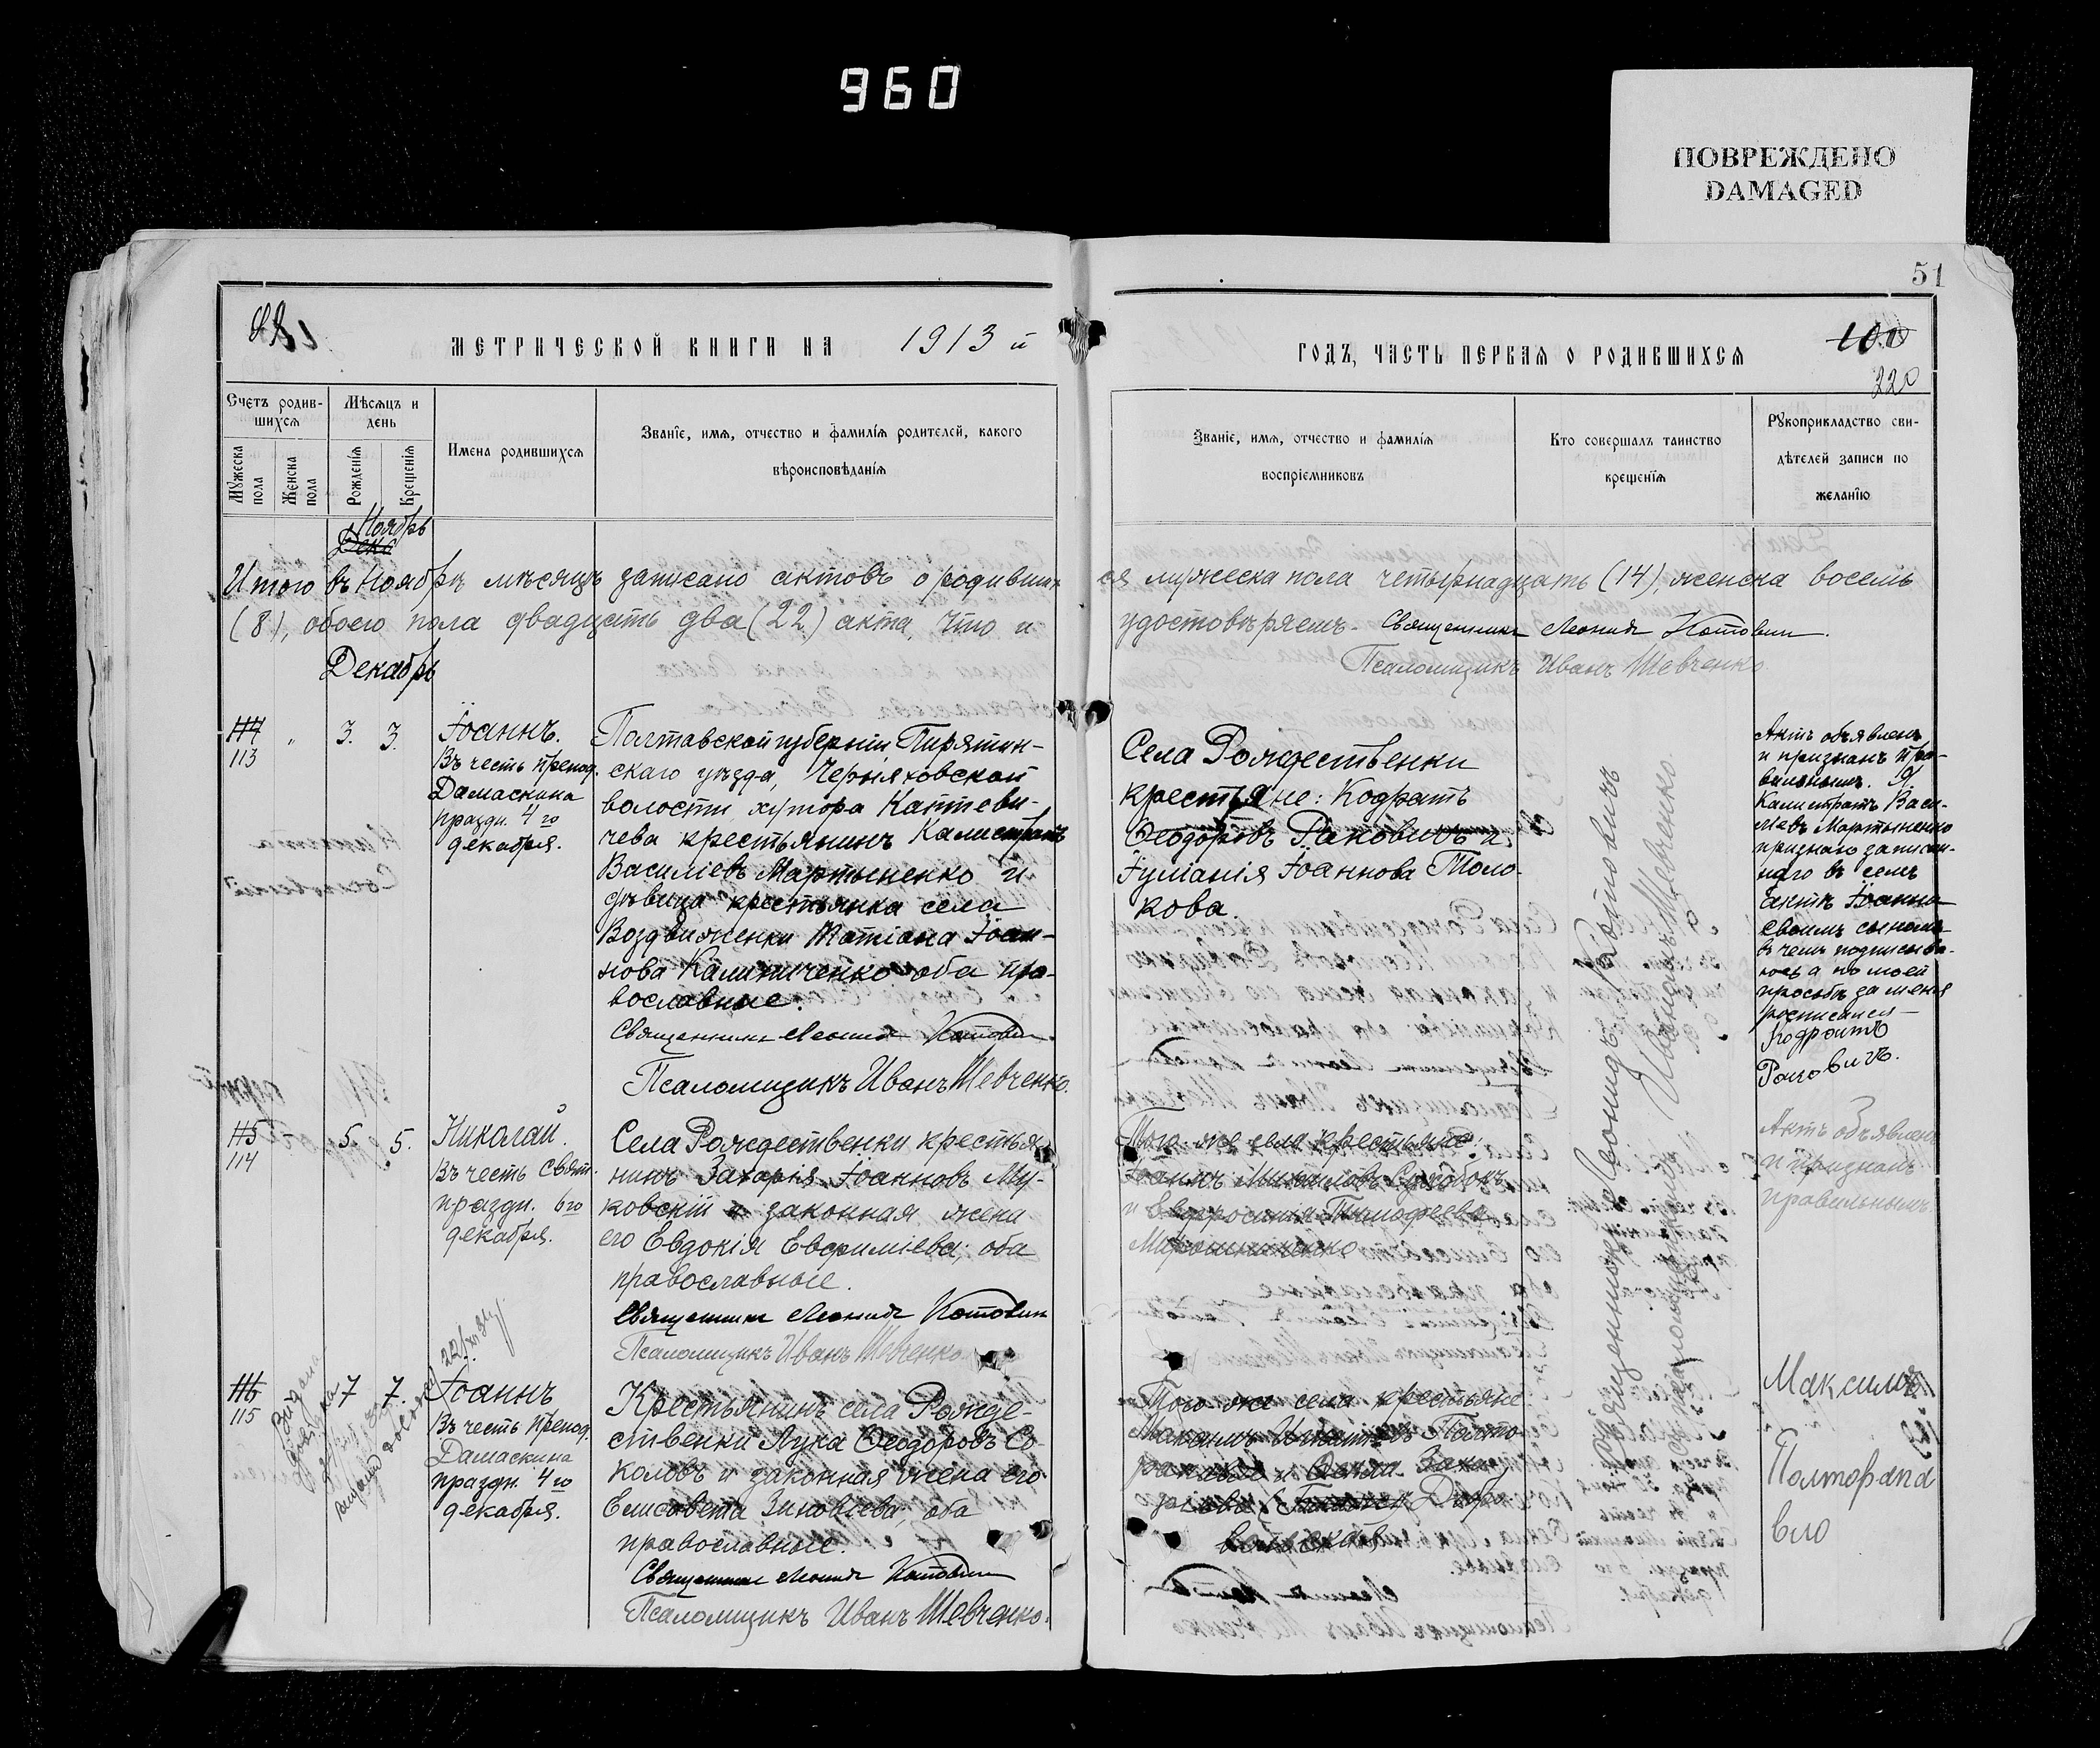 960
ПОВРЕЖДЕНО
DAMAGED
51
МЕТРИЧЕСКОЙ КНИГИ НА 1913 й
ГОДЪ, ЧАСТЬ ПЕРВАЯ О РОДИВШИХСЯ
100
220
Счетъ родив-
шихся
Мужеска пола
Женска пола
Мѣсяцъ и
день
Рожденія
Крещенія
Имена родившихся
Званіе, имя, отчество и фамилія родителей, какого
вѣроисповѣданія
Званіе, имя, отчество и фамилія
воспріемниковъ
Кто совершалъ таинство
крещенія
Рукоприкладство сви-
дѣтелей записи по
желанію
Ноябрь
Дека
Итого въ Ноябрѣ мѣсяцѣ записано актовъ о родивших ся мужеска пола четырнадцать (14), женска восемь
(8), обоего пола двадцать два (22) акта, что и удостовѣряемъ. Священникъ Леонидъ Котовичъ.
Псаломщикъ Иванъ Шевченко
Декабрь
114
113
"
3. 3.
Іоаннъ.
Въ честь препод.
Дамаскина
праздн. 4го
декабря.
Полтавской губерніи Пирятин-
скаго уѣзда, Черняховской
волости хутора Каптеви-
чева крестьянинъ Калистратъ
Василіевъ Мартыненко и
дѣвица крестьянка села
Воздвиженки Татіана Іоан-
нова Калиниченко оба пра-
вославные.
Священникъ Леонидъ Котовичъ.
Псаломщикъ Иванъ Шевченко.
Села Рождественки
крестьяне: Кодратъ
Ѳеодоровъ Раковичъ и
Іуліанія Іоаннова Толо-
кова.
Священникъ Леонидъ Котовичъ
Псаломщикъ Иванъ Шевченко
Актъ объявленъ
и признанъ пра-
вильнымъ. Я
Калистратъ Васи-
лиевъ Мартыненко
признаю записан-
наго въ семъ
актѣ Іоанна
своимъ сыномъ
въ чемъ подписыва-
юсь а по моей
просьбѣ за меня
росписался
Кодратъ
Раковичъ.
115
114
5. 5.
Николай.
Въ честь Свят.
праздн. 6го
декабря.
Села Рождественки крестья-
нинъ Захарія Іоанновъ Му-
ковскій и законная жена
его Евдокія Евфиміева; оба
православные.
Священникъ Леонидъ Котовичъ
Псаломщикъ Иванъ Шевченко
Того-же села крестьяне:
Іоаннъ Михаиловъ
и Евфросинія Тимофеева
Мирошниченко
Актъ объявленъ
и признанъ
правильнымъ.
116
115
7 7.
Іоаннъ
Въ честь препод.
Дамаскина
праздн. 4го
декабря.
Крестьянинъ села Рожде-
ственки Лука Ѳеодоровъ Со-
коловъ и законная жена его
Елисавета Зиновіева; оба
православные.
Священникъ Леонидъ Котовичъ
Псаломщикъ Иванъ Шевченко.
Того же села крестьяне
Максимъ
Максимъ
Полторапа
вло